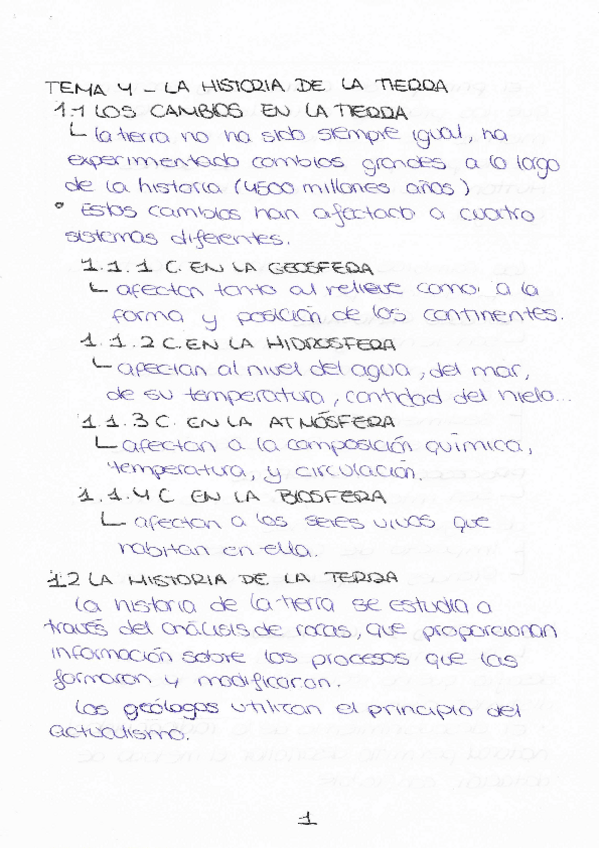 TEMA 4 - LA HISTORIA DE LA TIERRA
1.1 LOS CAMBIOS EN LA TIERRA
la tierra no ha sido siempre igual, ha
experimentado cambios grandes a lo largo
de la historia (4500 millones años)
° Estos cambios han afectado a cuatro
sistemas diferentes.
1.1.1 C. EN LA GEOSFERA
afectan tanto al relieve como a la
forma y posición de los continentes.
1.1.2 C. EN LA HIDROSFERA
afectan al nivel del agua, del mar,
de su temperatura, cantidad del hielo...
1.1.3 C. EN LA ATMÓSFERA
afectan a la composición química,
temperatura, y circulación.
1.1.4 C EN LA BIOSFERA
afectan a los seres vivos que
habitan en ella.
1.2 LA HISTORIA DE LA TERRA
La historia de la tierra se estudia a
través del análisis de rocas, que proporcionan
información sobre los procesos que las
formaron y modificaron.
Los geólogos utilizan el principio del
actualismo.
1